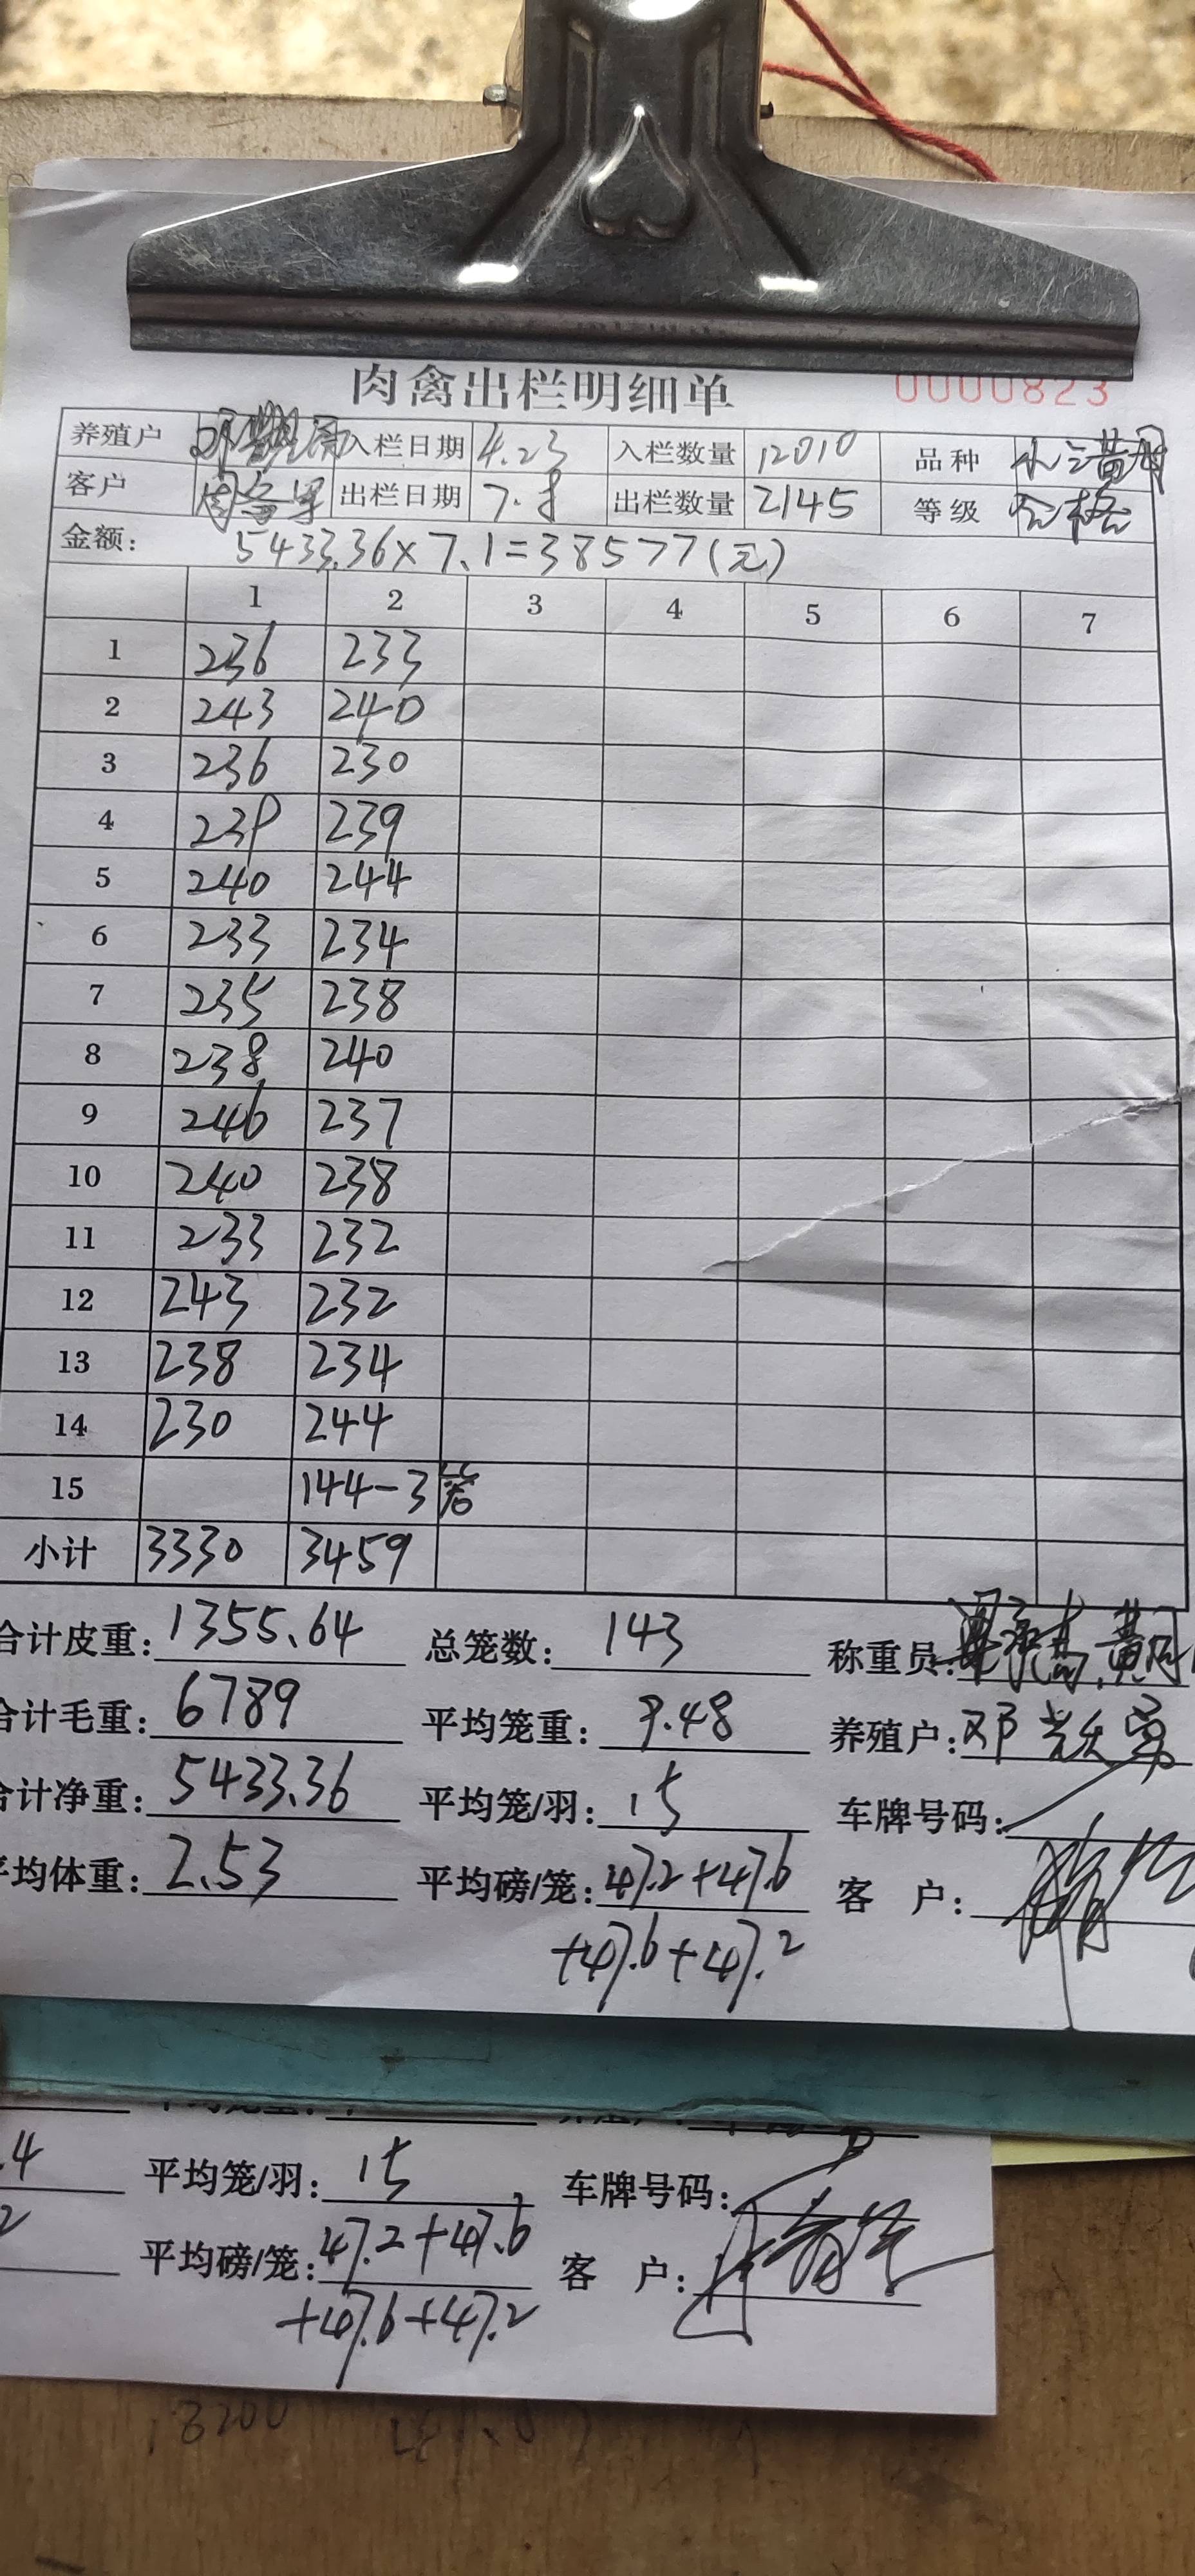 肉禽出栏明细单 0000823
养殖户 入栏日期 4.23 入栏数量 12010 品种
客户 出栏日期 7.8 出栏数量 2145 等级 合格
金额: 5433.36×7.1=38577(元)
1 2 3 4 5 6 7
1 236 233
2 243 240
3 236 230
4 239 239
5 240 244
6 233 234
7 235 238
8 238 240
9 246 237
10 240 238
11 233 232
12 243 232
13 238 234
14 230 244
15 144-3
小计 3330 3459
合计皮重: 1355.64 总笼数: 143 称重员:
合计毛重: 6789 平均笼重: 9.48 养殖户: 邓
合计净重: 5433.36 平均笼/羽: 15 车牌号码:
平均体重: 2.53 平均磅/笼: 47.2+47.6 客 户:
+47.6+47.2
.4 平均笼/羽: 15 车牌号码:
2 平均磅/笼: 47.2+47.6 客 户:
+47.6+47.2